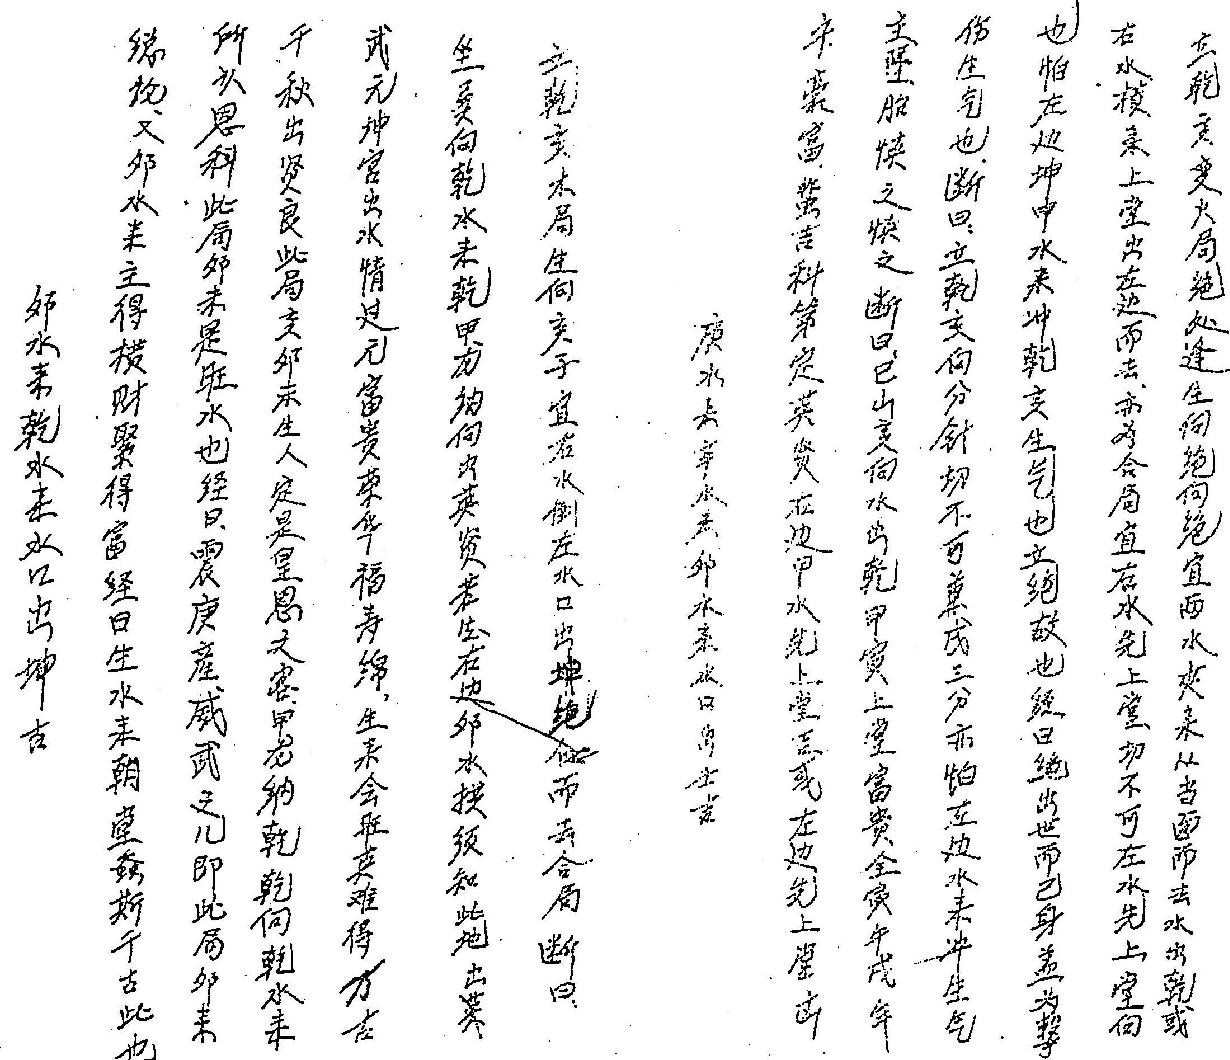 立乾亥变火局绝处逢生向绝向绝宜两水夹来从当面而去水出乾或
右水横来上堂出左边而去亦为合局宜右水先上堂切不可左水先上堂向
也怕左边坤申水来冲乾亥生气也立绝故也经曰绝出世而己身盖为击
伤生气也断曰立乾亥向分针切不可兼戌三分亦怕左边水来冲生气
主堕胎慎之慎之断曰巳山亥向水出乾甲寅上堂富贵全寅午戌年
富吉科第定英贤左边甲水先上堂吉或左边先上堂凶
庚水去辛水来卯水来水口出吉
立乾亥木局生向亥子宜右水倒左水口出坤绝位而去合局断曰
坐巽向乾水来乾甲龙纳向出英贤若生右边卯水横须知此地出
武元坤宫出水情过元富贵荣华福寿绵生来会旺真难得方吉
千秋出贤良此局亥卯未生人定是皇恩文客甲龙纳乾乾向乾水来
所以恩科此局卯未是旺水也经曰震庚产威武之儿即此局卯来
缘施又卯水来主得横财聚得富经曰生水来朝堂螽斯千古此也
卯水来乾水来水口出坤吉